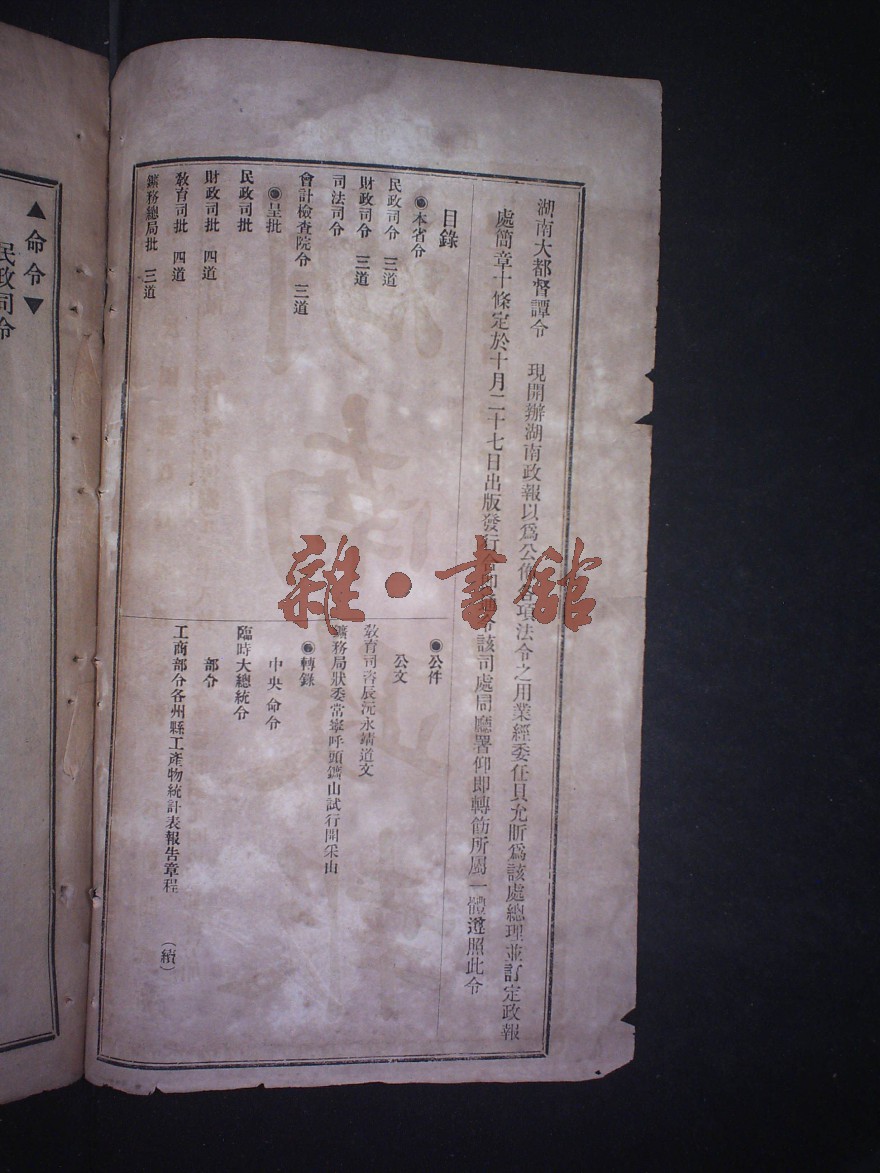 湖南大都督譚令　現開辦湖南政報以爲公佈各項法令之用業經委任貝允昕爲該處總理並訂定政報
處簡章十條定於十月二十七日出版發行合即通令該司處局廳署仰即轉飭所屬一體遵照此令
目錄
◉本省令
民政司令　三道
財政司令　三道
司法司令
會計檢查院令　三道
◉呈批
民政司批
財政司批　四道
教育司批　四道
鑛務總局批　三道
◉公件
公文
教育司咨辰沅永靖道文
鑛務局狀委常寧呼頭鑛山試行開采由
◉轉錄
中央命令
臨時大總統令
部令
工商部令各州縣工產物統計表報告章程　（續）
▲命令▼
民政司令
雜・書舘